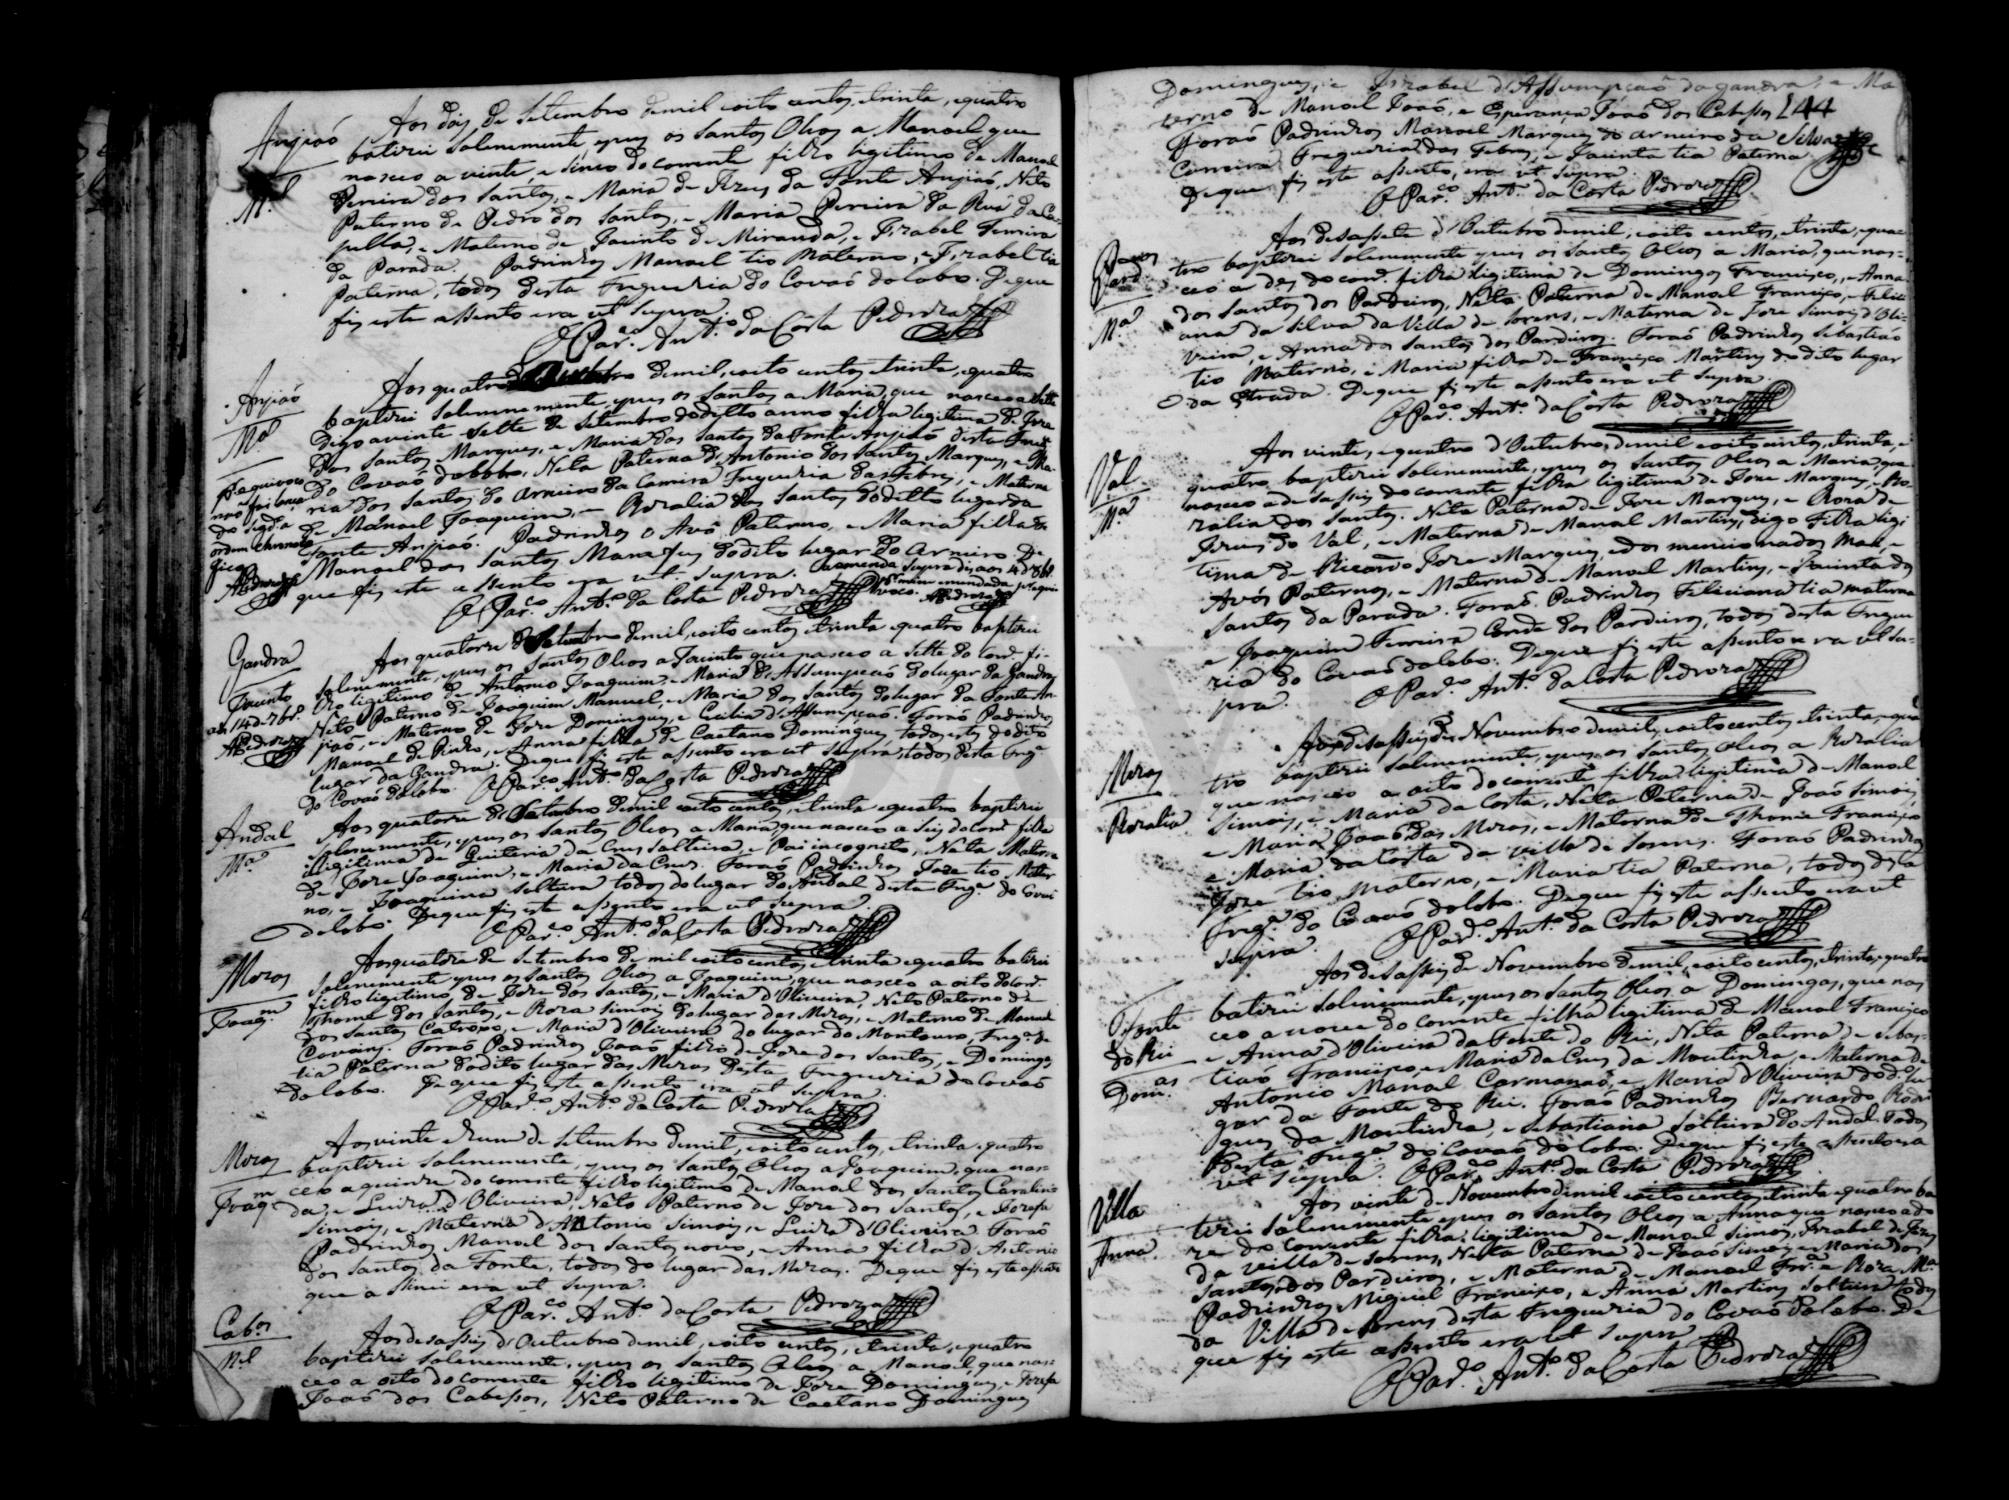 Anjiaõ
M.el
Aos dois de Setembro de mil, oito centos, e trinta, e quatro
batizei Solenemente, e pus os Santos Oleos a Manoel, que
nasceo a vinte, e sinco do corrente filho legitimo de Manoel
Pereira dos Santos, e Maria de Jezus da Fonte Anjiaõ, Neto
Paterno de Pedro dos Santos, e Maria Pereira da Rua da Ca-
pella, e Materno de Jacinto de Miranda, e Izabel Ferreira
da Parada. Padrinhos Manoel tio Materno, e Izabel tia
Paterna, todos desta Freguezia do Covaõ do lobo. De que
fiz este assento era ut supra.
O Par.co Ant.o da Costa Pedroza
Anjiaõ
M.a
Aos quatro de Outubro de mil, oito centos, e trinta, e quatro
baptizei Solenemente, e pus os Santos a Maria, que nasceo a Sette
digo a vinte Sette de Setembro do ditto anno filha legitima de Joze
dos Santos Marques, e Maria dos Santos da Fonte Anjiaõ desta Freg.a
do Covaõ do lobo, Neta Paterna de Antonio dos Santos Marques, e Ma-
ria dos Santos do Arneiro da Camira Freguezia das Febres, e Materna
de Manoel Joaquim, e Rozalia dos Santos do ditto lugar da
Fonte Anjiaõ. Padrinhos o Avô Paterno, e Maria filha de
Manoel dos Santos Mana fez do dito lugar do Arneiro. De
que fiz este assento era ut supra.
O Par.co Ant.o da Costa Pedroza
Gandra
Jacinto
aos 14 de 7br.o
Aos quatorze de Setembro de mil, oito centos, e trinta e quatro baptizei
Solenemente, e pus os Santos Oleos a Jacinto que nasceo a Sette do corr.e fi-
lho legitimo de Antonio Joaquim, e Maria d'Assumpçaõ do lugar da Gandra
Neto Paterno de Joaquim Manuel, e Maria dos Santos do lugar da Fonte An-
jiaõ, e Materno de Joze Domingues, e Cicilia d'Assumpçaõ. Foraõ Padrinhos
Manoel de Pinho, e Anna filha de Caetano Domingues, todos estes do dito
lugar da Gandra. De que fiz este assento era ut supra, todos desta Frg.a
do Covaõ do lobo. O Par.co Ant.o da Costa Pedroza
Andal
M.a
Aos quatorze de Setembro de mil oito centos, e trinta, e quatro baptizei
Solenemente, e pus os Santos Oleos a Maria, que nasceo a Seis do corr.e filha
illigitima de Quiteria da Crus Solteira, e Pai incognito, Neta Materna
de Joze Joaquim, e Maria da Crus. Foraõ Padrinhos Joze tio Mater
no, e Joaquina Solteira todos do lugar do Andal desta Frg.a do Covaõ
do lobo. De que fiz este assento era ut supra.
O Par.co Ant.o da Costa Pedroza
Mezas
Joaq.m
Aos quatorze de Setembro de mil oito centos, e trinta e quatro batizei
Solenemente e pus os Santos Oleos a Joaquim, que nasceo a oito do corr.e
filho legitimo de Joze dos Santos, e Maria d'Oliveira, Neto Paterno de
Thome dos Santos, e Roza Simois do lugar das Mezas, e Materno de Manoel
dos Santos Catroxo, e Maria d'Oliveira do lugar do Montouro, Frg.a de
Covoins. Foraõ Padrinhos Joaõ filho de Joze dos Santos, e Domingas
tia Paterna do dito lugar das Mezas desta Freguezia do Covaõ
do lobo. De que fiz este assento era ut supra.
O Par.co Ant.o da Costa Pedroza
Mezas
Joaq.m
Aos vinte e hum de Setembro de mil, oito centos, e trinta, e quatro
baptizei Solenemente, e pus os Santos Oleos a Joaquim, que nas-
ceo a quinze do corrente filho legitimo de Manoel dos Santos Caralin
da, e Luiza d'Oliveira, Neto Paterno de Joze dos Santos, e Jozefa
Simois, e Materno d'Antonio Simois, e Luiza d'Oliveira. Foraõ
Padrinhos Manoel dos Santos novo, e Anna filha d'Antonio
dos Santos da Fonte, todos do lugar das Mezas. De que fiz este assento
que asinei era ut supra.
O Par.co Ant.o da Costa Pedroza
Cab.os
M.el
Aos desasseis d'Outubro de mil, oito centos, e trinta, e quatro
baptizei Solenemente, e pus os Santos Oleos a Manoel, que nas-
ceo a oito do corrente filho legitimo de Joze Domingues, e Jozefa
Joaõ dos Cabessos, Neto Paterno de Caetano Domingues
Domingues, e Izabel d'Assumpçaõ da Gandra, e Ma
terno de Manoel Joaõ, e Esperança Joaõ dos Cabessos 144
Foraõ Padrinhos Manoel Marques do Arneiro da Silva
Camira Freguezia das Febres, e Jacinta tia Paterna.
De que fiz este assento, era ut supra.
O Par.co Ant.o da Costa Pedroza
Pard.os
M.a
Aos desassete d'Outubro de mil, oito centos, e trinta, e qua-
tro baptizei Solenemente e pus os Santos Oleos a Maria, que nas-
ceo a des do corr.e filha legitima de Domingos Francisco, e Anna
dos Santos dos Pardeiros, Neta Paterna de Manoel Francisco, e Felici
ana da Silva da Villa de Sorens, e Materna de Joze Simois d'Oli-
veira, e Anna dos Santos dos Pardeiros. Foraõ Padrinhos Sebastiaõ
tio Materno, e Maria filha de Francisco Martins do dito lugar
da Estrada. De que fiz este assento era ut supra.
O Par.co Ant.o da Costa Pedroza
Val
M.a
Aos vinte, e quatro d'Outubro, de mil oito centos, e trinta, e
quatro baptizei Solenemente, e pus os Santos Oleos a Maria, que
nasceo a desasseis do corrente filha legitima de Joze Marques, e Ro-
zalia dos Santos. Neta Paterna de Joze Marques, e Roza de
Jezus do Val, e Materna de Manoel Martins, digo Filha legi
tima de Ricardo Joze Marques,
Avós Paternos, e Materna de Manoel Martins, e Jacinta dos
Santos da Parada. Foraõ Padrinhos Filiciana tia materna
e Joaquim Ferreira Conde dos Pardeiros, todos desta Fregue
zia do Covaõ do lobo. De que fiz este assento era ut su-
pra. O Par.co Ant.o da Costa Pedroza
Mezas
Rozalia
Aos desasseis de Novembro de mil, oito centos, e trinta, e qua
tro baptizei Solenemente, e pus os Santos Oleos a Rozalia
que nasceo a oito do corrente filha legitima de Manoel
Simois, e Maria da Costa, Neta Paterna de Joaõ Simois,
e Maria Joaõ das Mezas, e Materna de Thome Francisco
e Maria da Costa da villa de Sorens. Foraõ Padrinhos
Joze tio Materno, e Maria tia Paterna, todos desta
Freg.a do Covaõ do lobo. De que fiz este assento era ut
supra. O Par.co Ant.o da Costa Pedroza
Fonte
do Rei
Dom.as
Aos desasseis de Novembro de mil, oito centos, e trinta, e quatro
batizei Solenemente, e pus os Santos Oleos a Domingas, que nas
ceo a nove do corrente filha legitima de Manoel Francisco
e Anna d'Oliveira da Fonte do Rei, Neta Paterna de Sebas-
tiaõ Francisco, e Maria da Crus da Moutinha, e Materna de
Antonio Manoel Carmanaõ, e Maria d'Oliveira do d.o lu
gar da Fonte do Rei. Foraõ Padrinhos Bernardo Rodri
gues da Moutinha, e Sebastiana Solteira do Andal. Todos
desta Frg.a do Covaõ do lobo. De que fiz este assento era
ut supra. O Par.co Ant.o da Costa Pedroza
Villa
Anna
Aos vinte de Novembro de mil oito centos, e trinta e quatro ba
tizei Solenemente e pus os Santos Oleos a Anna que nasceo a do
ze do corrente filha legitima de Manoel Simois, e Izabel de Jezus
da villa de Sorens, Neta Paterna de Joaõ Simois e Maria dos
Santos dos Pardeiros, e Materna de Manoel Frr.a e Roza M.a
Padrinhos Miguel Francisco, e Anna Martins Solteira todos
da Villa de Sorens desta Freguezia do Covaõ do lobo. De
que fiz este assento era ut supra.
O Par.co Ant.o da Costa Pedroza